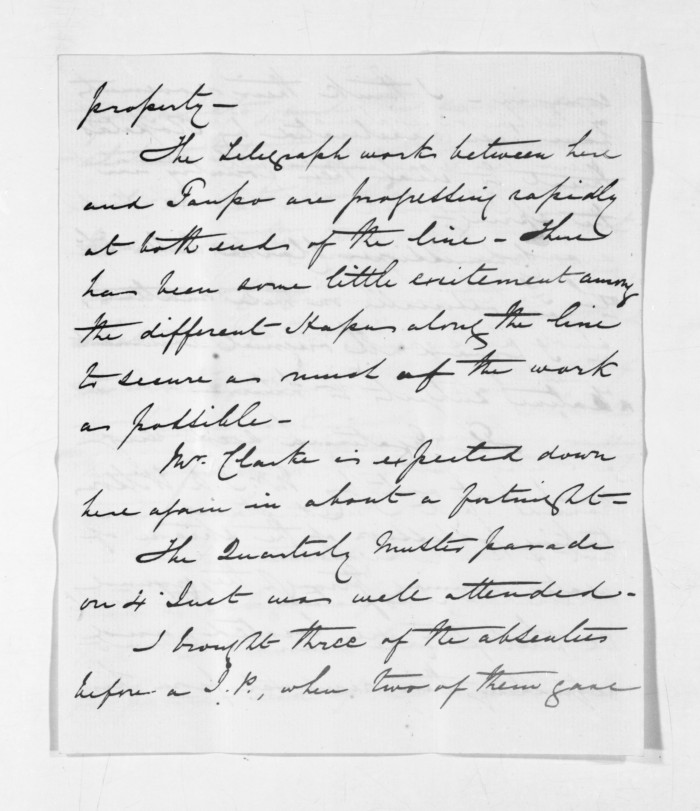 property —
The Telegraph works between here
and Taupo are progressing rapidly
at both ends of the line — There
has been some little excitement among
the different Hapus along the line
to secure as much of the work
as possible —
Mr. Clarke is expected down
here again in about a fortnight —
The Quarterly Muster parade
on 4th Inst was well attended —
I brought three of the absentees
before a J.P., when two of them gave